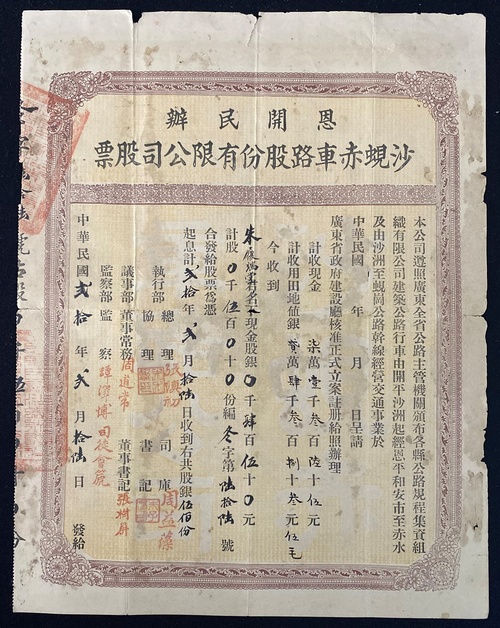 恩開民辦
沙蜆赤車路股份有限公司股票
本公司遵照廣東全省公路主管機關頒布各縣公路規程集資組
織有限公司建築公路行車由開平沙洲起經恩平和安市至赤水
及由沙洲至蜆崗公路幹線經營交通事業於
中華民國 年 月 日呈請
廣東省政府建設廳核准正式立案註冊給照辦理
計收現金 柒萬壹千叁百陸十伍元
計收用田地值銀貳萬肆千叁百捌十叁元伍毛
今收到
朱 名下現金股銀0千肆百伍十0元
計股0千伍百0十0份編冬字第陸拾陸號
合發給股票爲憑
起息計貳拾年貳月拾陸日收到右共股銀伍佰份
執行部 總理 司庫 周益藻
協理 書記
議事部 董事常務 周道常 董事書記 張樹屏
監察部 監察 司徒會
中華民國貳拾年貳月拾陸日發給